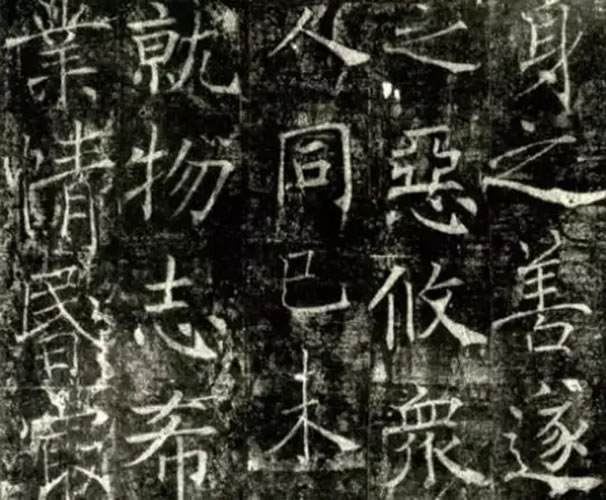 身之善遂
之惡攸衆
人同已未
就物志希
業情昬